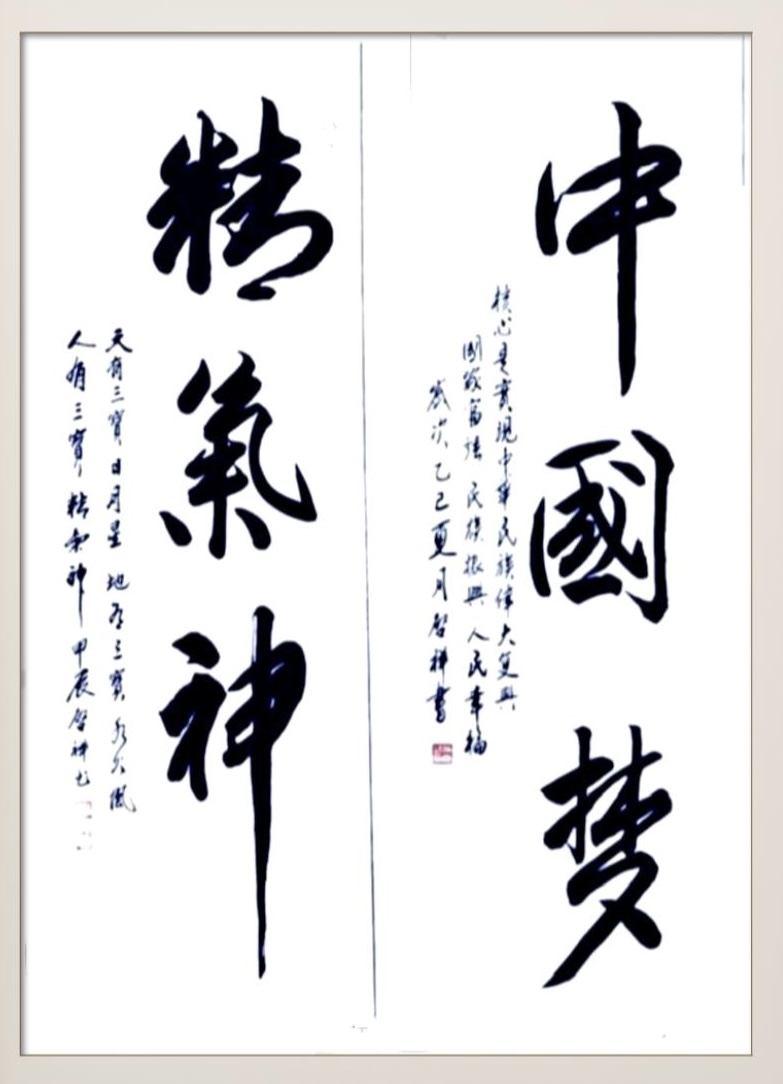 中國梦
核心是實現中華民族偉大复興
國家富強 民族振興 人民幸福
歲次乙巳夏月啓祥書
精氣神
天有三寶日月星 地有三寶水火風
人有三寶精氣神 甲辰啓祥書